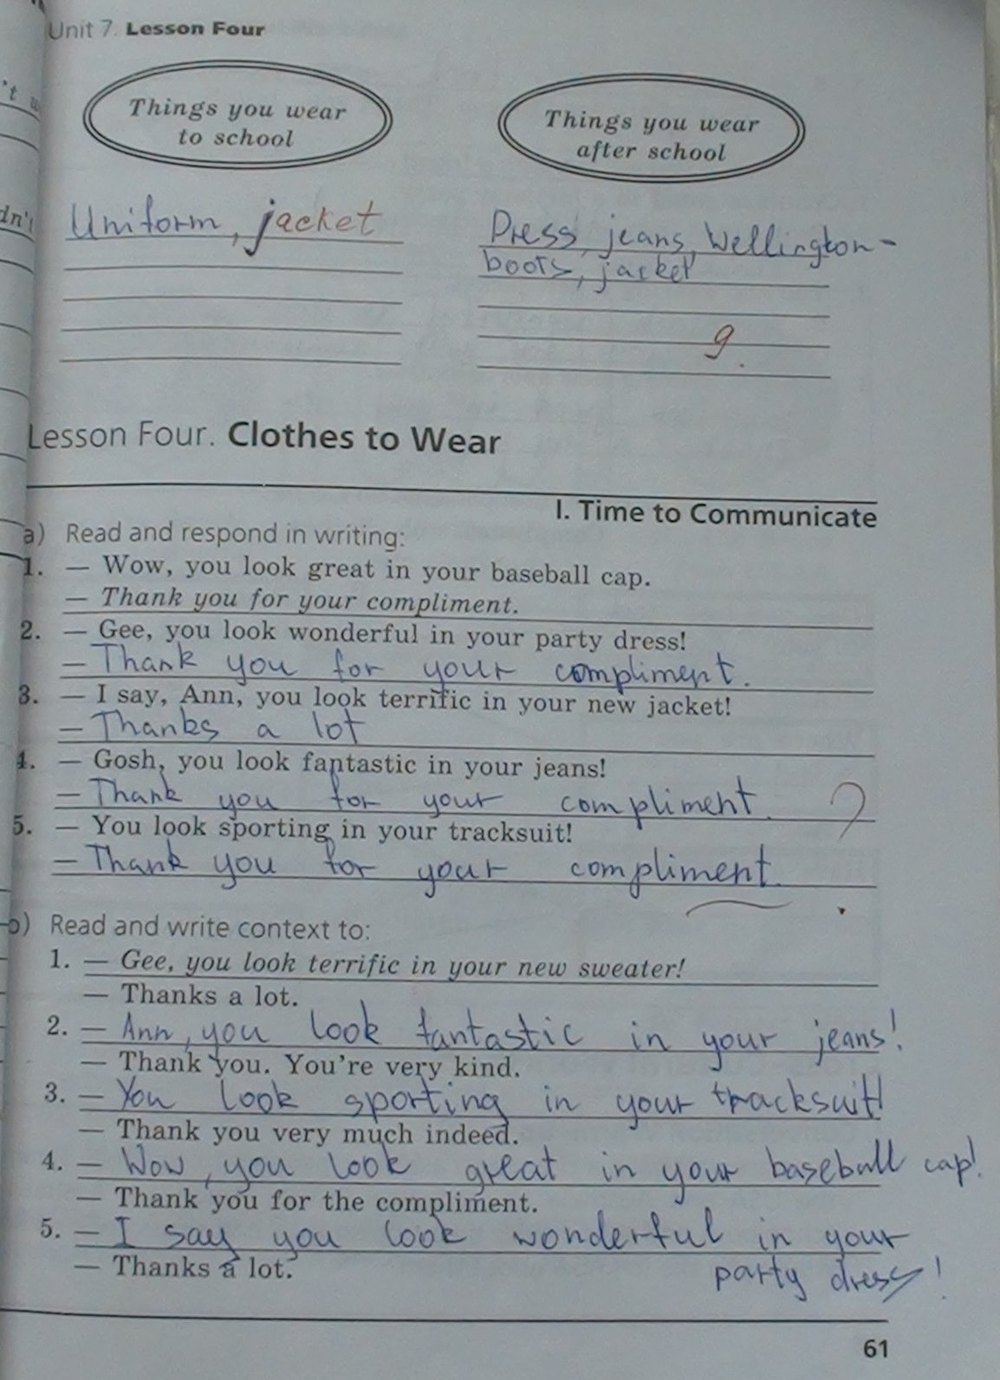 Unit 7. Lesson Four
Things you wear
to school
Things you wear
after school
Uniform, jacket
Dress, jeans, Wellington-
boots, jacket
9.
Lesson Four. Clothes to Wear
I. Time to Communicate
a) Read and respond in writing:
1. — Wow, you look great in your baseball cap.
— Thank you for your compliment.
2. — Gee, you look wonderful in your party dress!
— Thank you for your compliment.
3. — I say, Ann, you look terrific in your new jacket!
— Thanks a lot
4. — Gosh, you look fantastic in your jeans!
— Thank you for your compliment.
5. — You look sporting in your tracksuit!
— Thank you for your compliment.
b) Read and write context to:
1. — Gee, you look terrific in your new sweater!
— Thanks a lot.
2. — Ann, you look fantastic in your jeans!
— Thank you. You're very kind.
3. — You look sporting in your tracksuit!
— Thank you very much indeed.
4. — Wow, you look great in your baseball cap!
— Thank you for the compliment.
5. — I say you look wonderful in your
party dress!
— Thanks a lot.
61